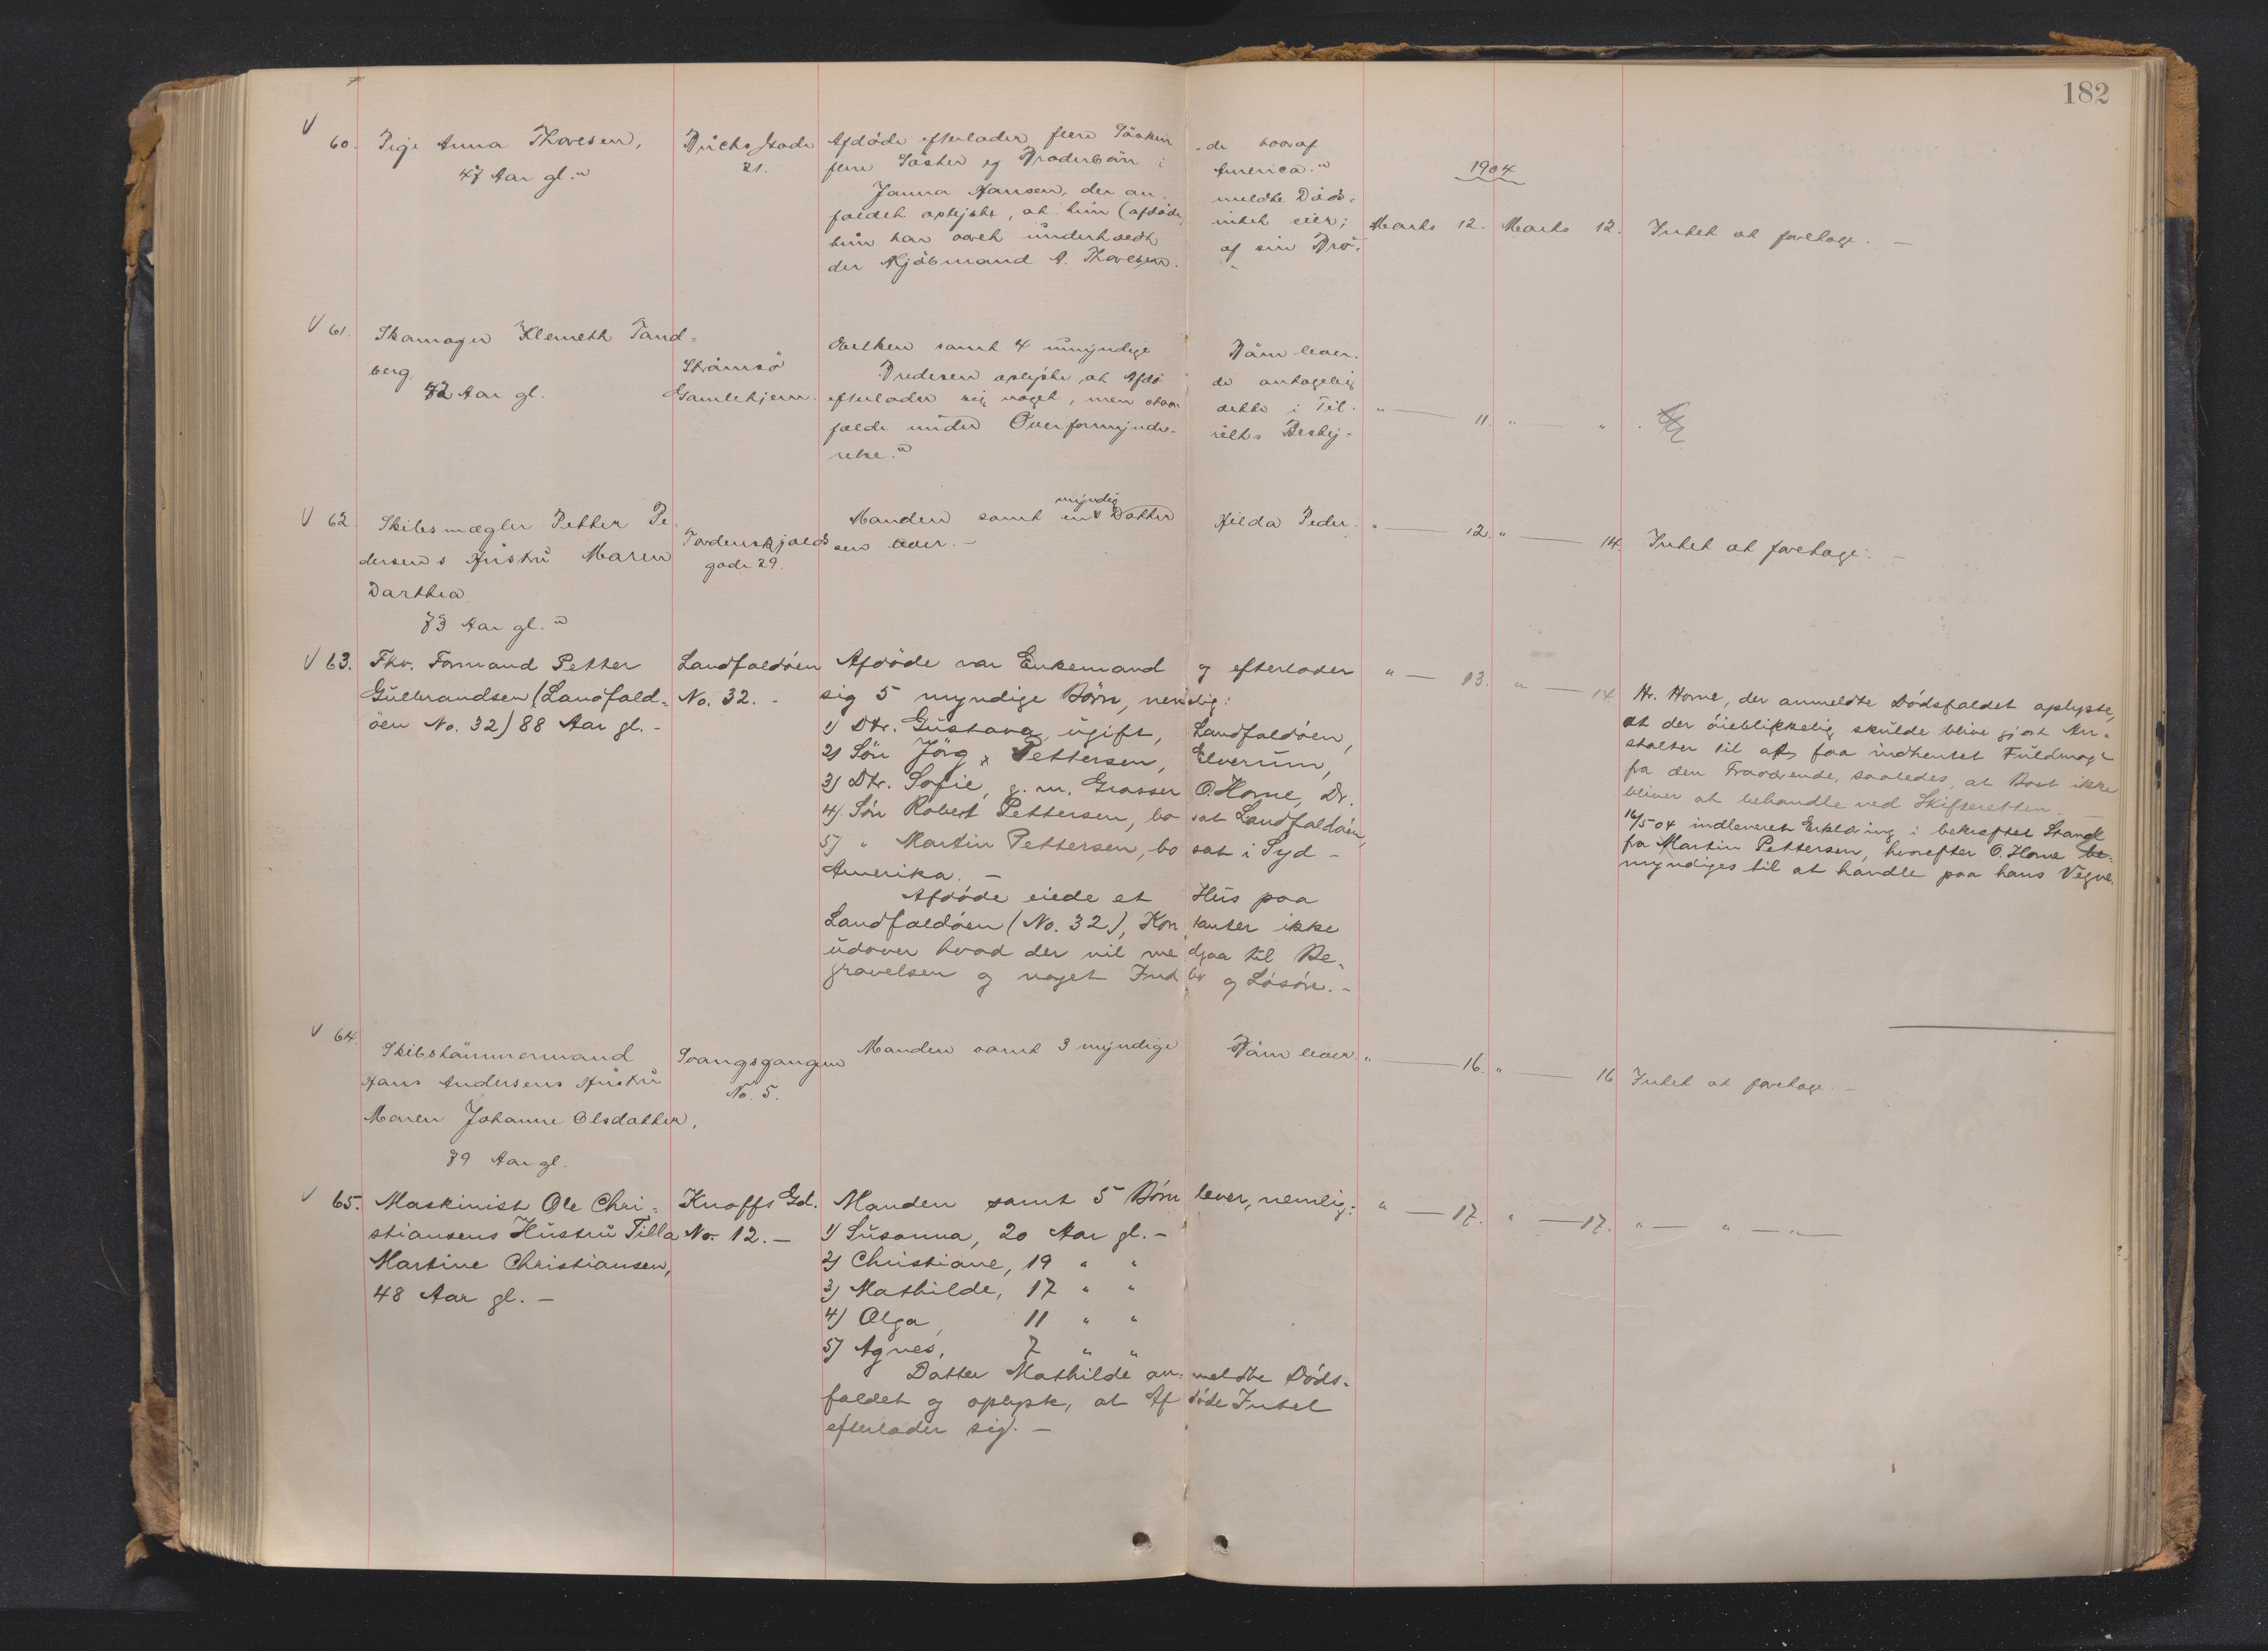 182
1904
60. Pige Anna Thoresen,
47 Aar gl.
21.
Afdöde efterlader flere Söskende hvoraf
flere Söster og Broderbörn i America.
Janna Hansen, der anmeldte Döds-
faldet oplyste, at hun (afdöde) intet eier;
hun har været underholdt af sin Bro-
der Kjöbmand A. Thoresen.
Marts 12. Marts 12. Intet at foretage. —
61. Skomager Klemeth Tand-
berg
72 Aar gl.
Strömsö
Gamlehjem.
Enken samt 4 umyndige Börn lever.
oplyste at Afdö de antagelig
efterlader sig noget, men dette i Til-
fælde under Overformynde-
relse.
" — 11. " — "
62. Skibsmægler Petter Pe-
dersens Hustru Maren
Dorthea
73 Aar gl.
Tordenskjolds
gade 29.
Manden samt en myndig Datter Hilda Peder-
sen lever. —
" — 12. " — 14. Intet at foretage. —
63. Fhv. Formand Petter
Gulbrandsen (Landfald-
öen No. 32) 88 Aar gl. -
Landfaldöen
No. 32. -
Afdöde var Enkemand og efterlader
sig 5 myndige Börn, nemlig:
1) Dtr. Gustava, ugift, Landfaldöen,
2) Sön Jörg. Pettersen, Elverum,
3) Dtr. Sofie, g. m. Grosser O. Horne, Dr.
4) Sön Robert Pettersen, bosat Landfaldöen,
5) " Martin Pettersen, bosat i Syd-
Amerika. —
Afdöde eiede et Hus paa
Landfaldöen (No. 32), Kontanter ikke
udover hvad der vil medgaa til Be-
gravelsen og noget Indbo og Lösöre. -
" — 13. " — 14.
Hr. Horne, der anmeldte Dödsfaldet oplyste,
at der öieblikkelig skulde blive gjort An-
stalter til at faa indhentet Fuldmagt
fra den Fraværende, saaledes, at Boet ikke
bliver at behandle ved Skifteretten. —
16/5 04 indleveret Erklæring i bekræftet Stand
fra Martin Pettersen, hvorefter O. Horne be-
myndiges til at handle paa hans Vegne.
64. Skibstömmermand
Hans Andersens Hustru
Maren Johanne Olsdatter,
79 Aar gl.
Svangsgangen
No. 5.
Manden samt 3 myndige Börn lever.
" — 16. " — 16 Intet at foretage. —
65. Maskinist Ole Chri-
stiansens Hustru Tilla
Martine Christiansen,
48 Aar gl. —
Knoffs Gd.
No. 12. —
Manden samt 5 Börn lever, nemlig:
1) Susanna, 20 Aar gl. -
2) Christiane, 19 " "
3) Mathilde, 17 " "
4) Olga, 11 " "
5) Agnes, 7 " "
Datter Mathilde anmeldte Döds-
faldet og oplyste, at Afdöde Intet
efterlader sig. —
" — 17. " — 17. " — " — " —